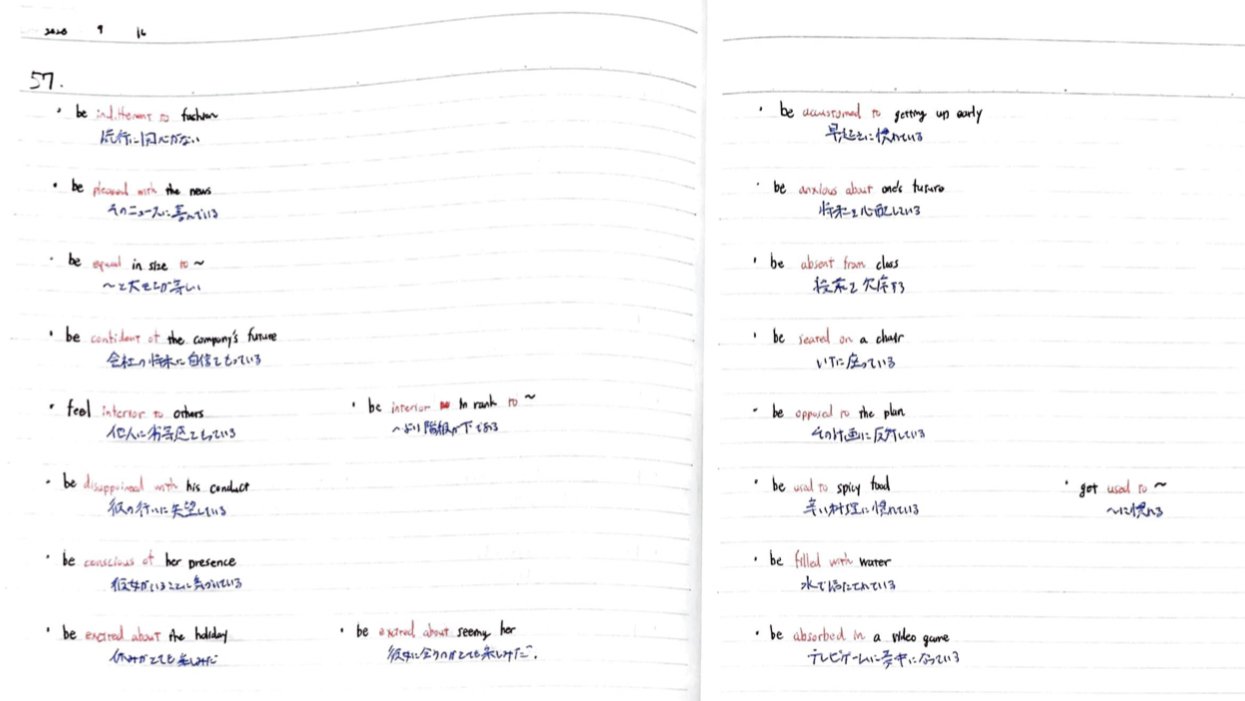 2020 9 16
57.
・ be indifferent to fashion
流行に関心がない
・ be pleased with the news
そのニュースに喜んでいる
・ be equal in size to ～
～と大きさが等しい
・ be confident of the company's future
会社の将来に自信をもっている
・ feel inferior to others
他人に劣等感をもっている
・ be inferior in rank to ～
～より階級が下である
・ be disappointed with his conduct
彼の行いに失望している
・ be conscious of her presence
彼女がいることに気づいている
・ be excited about the holiday
休みがとても楽しみだ
・ be excited about seeing her
彼女に会うのがとても楽しみだ.
・ be accustomed to getting up early
早起きに慣れている
・ be anxious about one's future
将来を心配している
・ be absent from class
授業を欠席する
・ be seated on a chair
いすに座っている
・ be opposed to the plan
その計画に反対している
・ be used to spicy food
辛い料理に慣れている
・ get used to ～
～に慣れる
・ be filled with water
水で満たされている
・ be absorbed in a video game
テレビゲームに夢中になっている